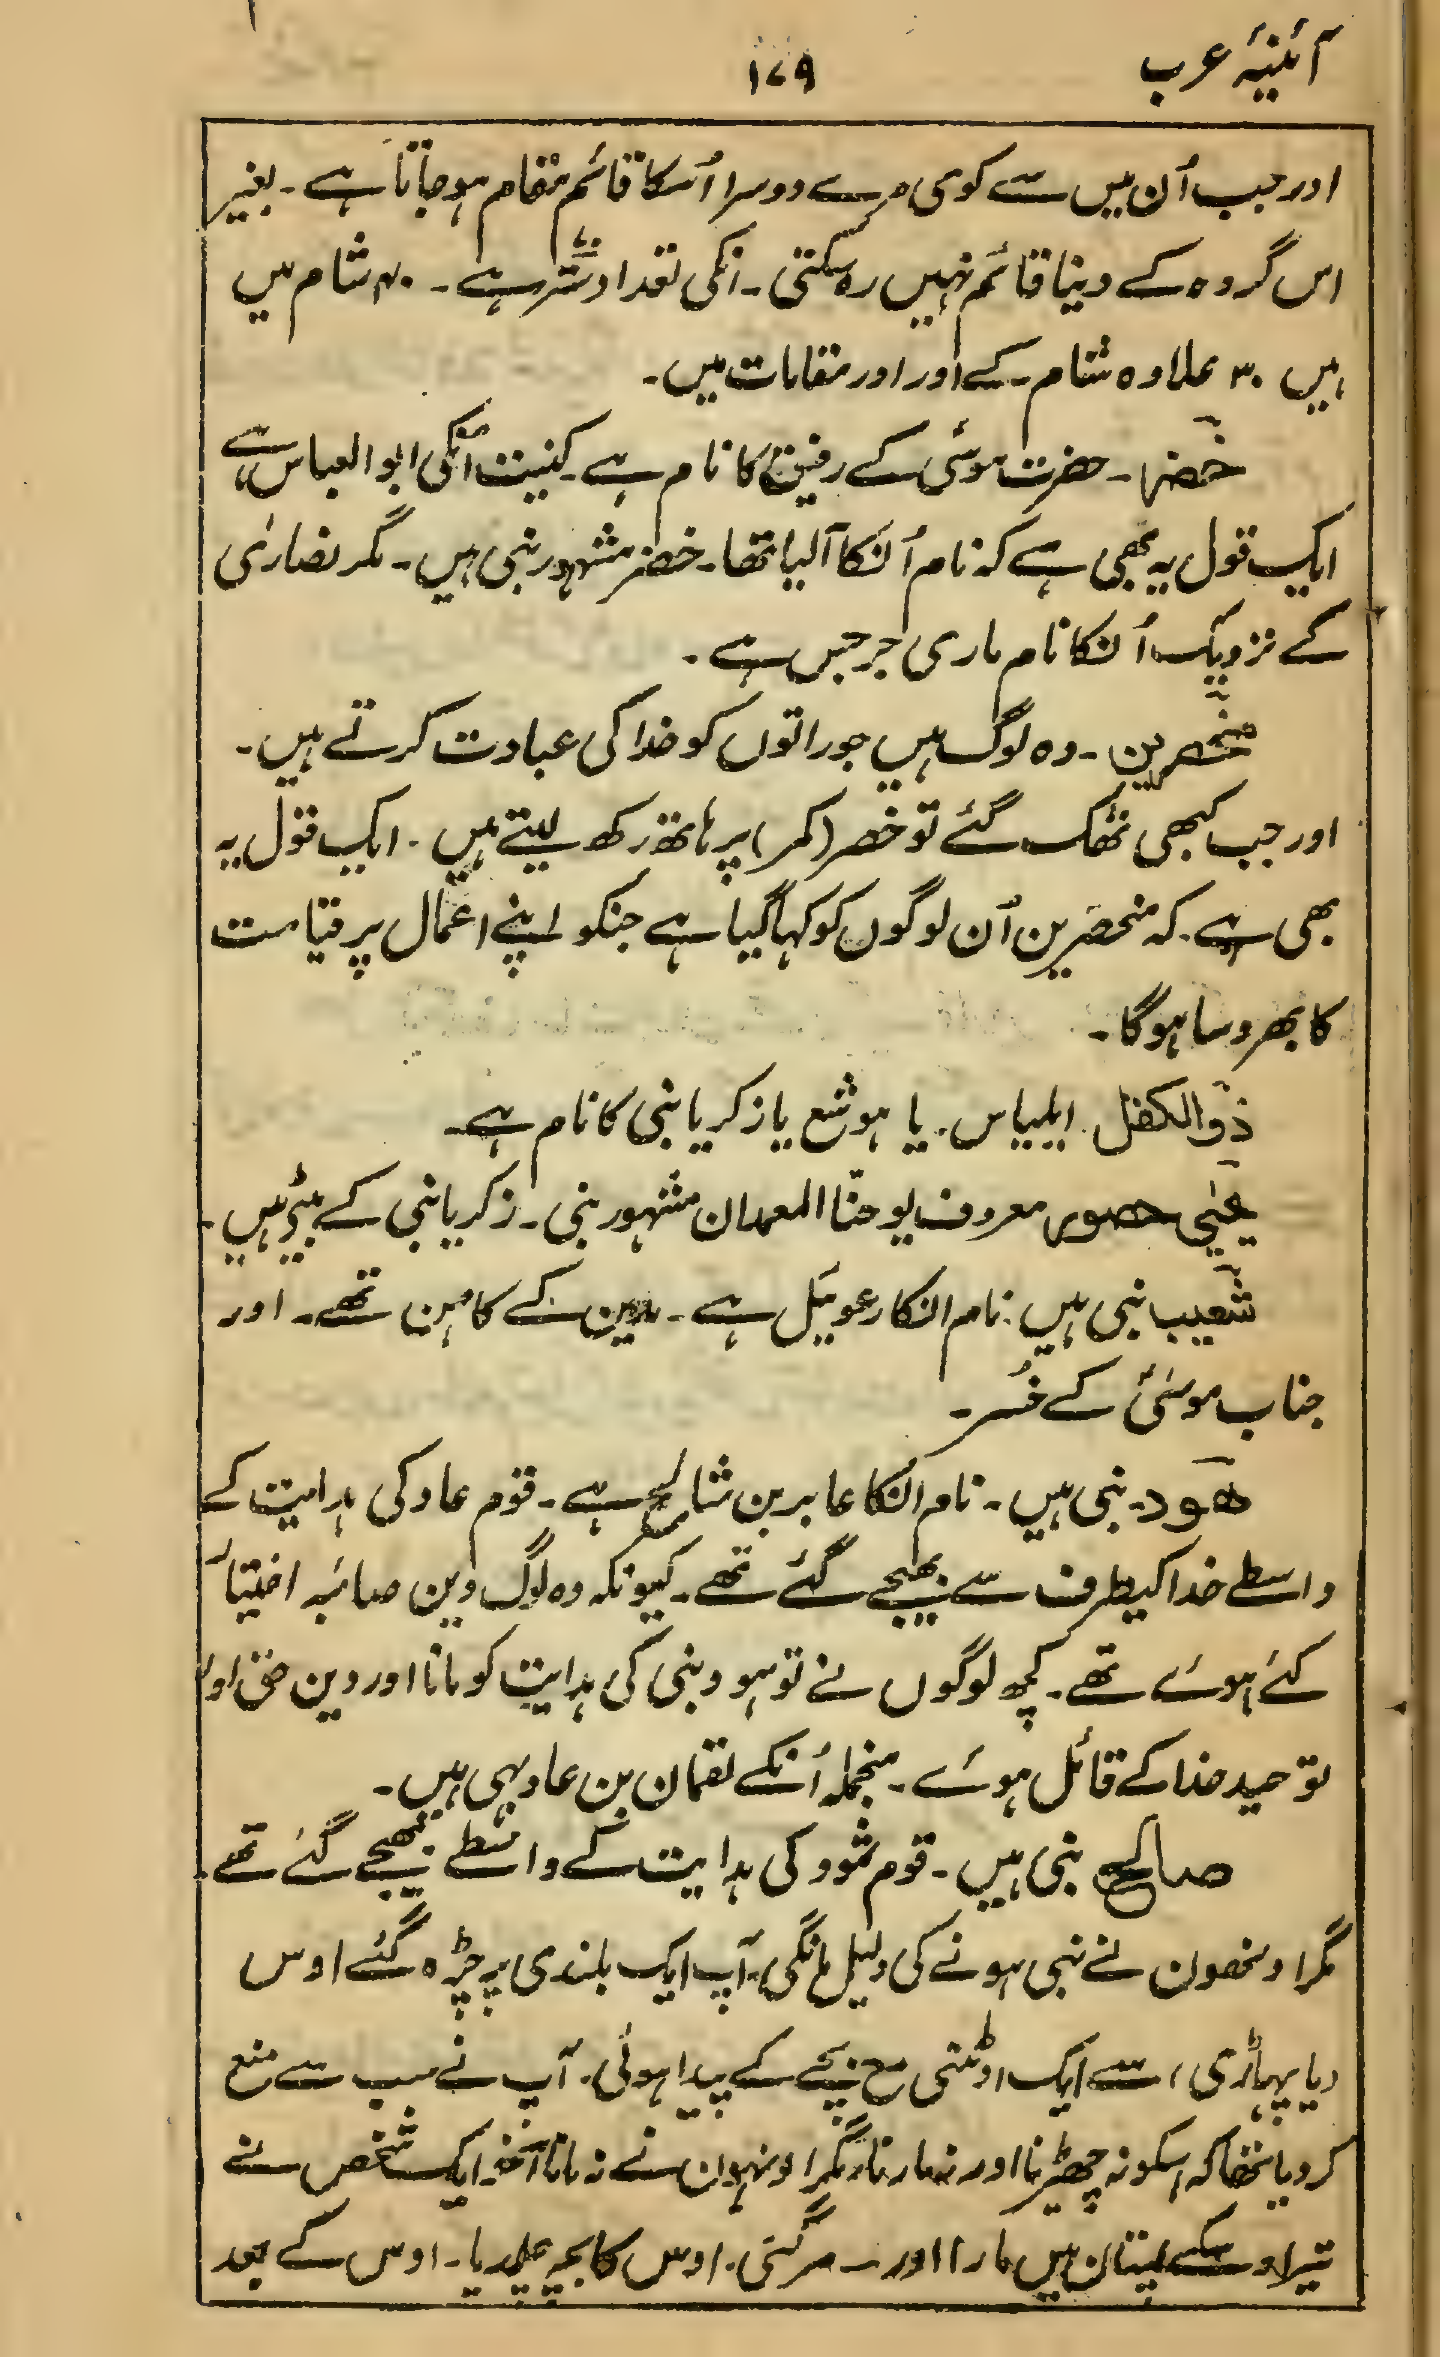 آئنیۂ عرب
۱۷۹
اور جب اُن میں سے کوی مرے دوسرا اُسکا قائم مقام ہوجاتا ہے ۔ بغیر
اس گروہ کے دینا قائم نہیں رہ سکتی ۔ انکی تعداد ستّر ہے ۔ ۴۰ شام میں
ہیں ۳۰ علاوہ شام کے اور اور مقامات میں۔
خضر۔ حضرت موسیٰ کے رفیق کا نام ہے ۔ کنیت اُنکی ابو العباس ہے
ایک قول یہ بھی ہے کہ نام اُنکا آلیا تھا۔ خضر مشہور نبی ہیں ۔ مگر نصاریٰ
کے نزدیک اُنکا نام ماری جرجس ہے ۔
متخصرین ۔ وہ لوگ ہیں جو راتوں کو خدا کی عبادت کرتے ہیں ۔
اور جب کبھی تھک گئے تو خصر (کمر) پر ہاتھ رکھ لیتے ہیں ۔ ایک قول یہ
بھی ہے ۔ کہ متخصرین اُن لوگوں کو کہا گیا ہے جنکو اپنے اعمال پر قیامت
کا بھروسا ہوگا ۔
ذو الکفل ۔ ایلیاس ۔ یا ہوشع یا زکریا نبی کا نام ہے۔
یحیٰی حصور معروف یوحنّا المعمدان مشہور نبی ۔ زکریا نبی کے بیٹے ہیں ۔
شعیب نبی ہیں ۔ نام انکا رعوئیل ہے ۔ مدین کے کاہن تھے ۔ اور
جناب موسیٰ کے خُسر ۔
ھود۔ نبی ہیں ۔ نام اُنکا عابر بن شالح ہے ۔ قوم عاد کی ہدایت کے
واسطے خدا کیطرف سے بھیجے گئے تھے ۔ کیونکہ وہ لوگ دین صائبہ اختیار
کئے ہوئے تھے ۔ کچھ لوگوں نے تو ہود نبی کی ہدایت کو مانا اور دین حق اور
توحید خدا کے قائل ہوئے ۔ منجملہ اُنکے لقمان بن عاد بہی ہیں ۔
صالح نبی ہیں ۔ قوم ثمود کی ہدایت کے واسطے بھیجے گئے تھے ۔
مگر اونھون نے نبی ہونے کی دلیل مانگی ۔ آپ ایک بلندی پر چڑہ گئے اوس
(یا پہاڑی) سے ایک اونٹنی مع بچے کے پیدا ہوئی ۔ آپ نے سب سے منع
کر دیا تھا کہ اسکو نہ چھیڑنا اور نہ مارنا۔ مگر اونہون نے نہ مانا آخر ایک شخص نے
تیر اوسکے پستان میں مارا اور مرگئی ۔ اوس کا بچہ چلدیا ۔ اوس کے بعد